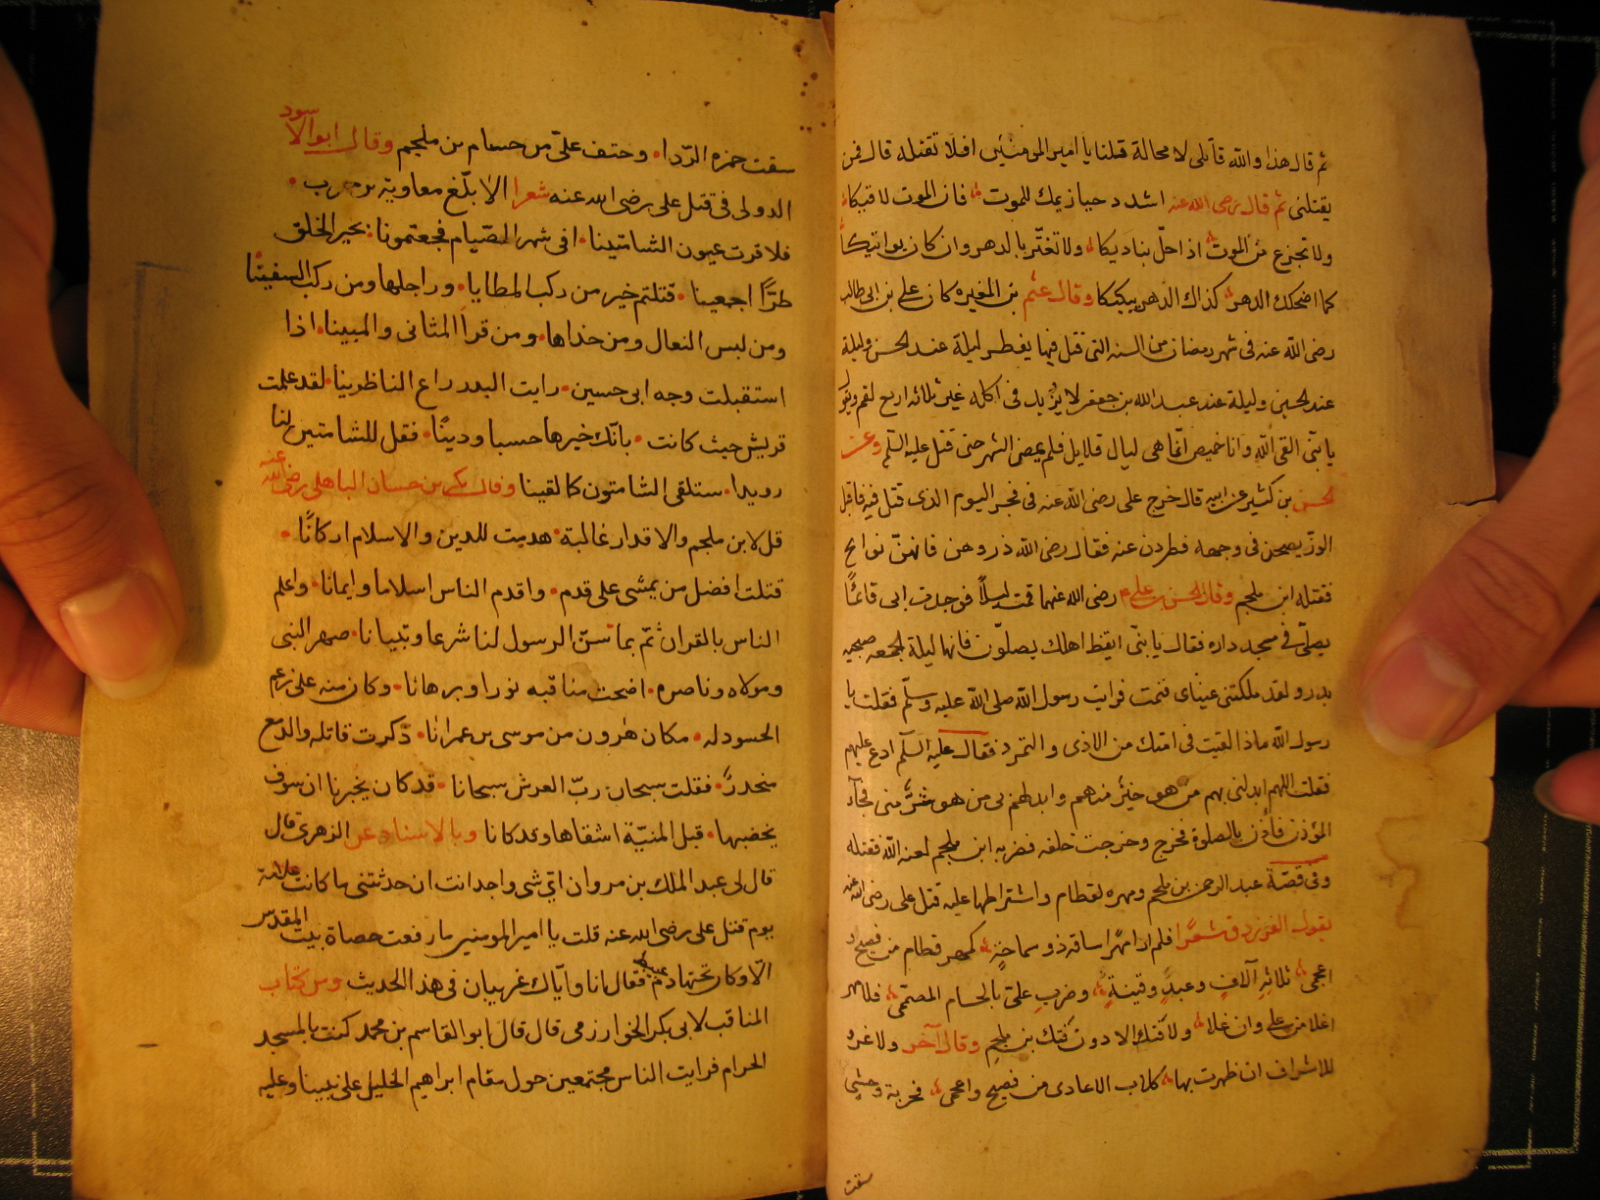 ثم قال هذا والله قاتلى لا محالة قلنا يا امير المومنين افلا تقتله قال فمن
يقتلنى ثم قال رضى الله عنه اشدد حيازيمك للموت فان الموت لاقيكا
ولا تجزع من الموت اذا حل بناديكا ولا تغتر بالدهر وان كان يواتيكا
كما اضحكك الدهر كذاك الدهر يبكيكا وقال عثم بن المغيره كان على بن ابى طالب
رضى الله عنه فى شهر رمضان من السنه التى قتل فيها يفطر ليلة عند الحسن وليلة
عند الحسين وليلة عند عبد الله بن جعفر لا يزيد فى اكله غير ثلاثه اربع لقم ويقول
يا بنى القى الله وانا خميص انما هى ليال قلايل فلم يمض الشهر حتى قتل عليه السلم وعن
الحسن بن كثير عن ابيه قال خرج على رضى الله عنه فى فجر اليوم الذى قتل فيه فاقبل
الوز يصحن فى وجهه فطردن عنه فقال رضى الله ذروهن فانهن نوايح
فقتله ابن ملجم وقال الحسن بن على رضى الله عنهما قمت ليلا فوجدت ابى قائما
يصلى فى مسجد داره فقال يا بنى ايقظ اهلك يصلون فانها ليلة الجمعه صبيحه
بدر ولقد ملكتنى عيناى فنمت فرايت رسول الله صلى الله عليه وسلم فقلت يا
رسول الله ماذا لقيت فى امتك من الاذى و التمرد فقال عليه السلم ادع عليهم
فقلت اللهم ابدلنى بهم من هو خير منهم وابدلهم بى من هو شر منى فجآء
المؤذن فأذن بالصلوة فخرج وخرجت خلفه فضربه ابن ملجم لعنه الله فقتله
وفى قصة عبد الرحمن بن ملجم ومهره لقطام واشتراطها عليه قتل على رضى الله عنه
يقول الفرزدق شعرا فلم ار مهرا ساقه ذو سماحة كمهر قطام من فصيح و
اعجمى ثلاثة آلاف وعبد وقينة وضرب على بالحسام المصمم فلا مهر
اغلا من على وان غلا ولا فتك الا دون فتك بن ملجم وقال آخر ولا غره
للاشراف ان ظفرت بها كلاب الاعادى من فصيح واعجمى فحربة وحشى
سقت
سقت حمزه الردا وحتف على من حسام بن ملجم وقال ابو الاسود
الدولى فى قتل على رضى الله عنه شعرا الا بلغ معاوية بن حرب
فلا قرت عيون الشامتينا افى شهر الصيام فجعتمونا بخير الخلق
طرا اجمعينا قتلتم خير من ركب المطايا وراجلها ومن ركب السفينا
ومن لبس النعال ومن حذاها ومن قرا المثانى والمبينا اذا
استقبلت وجه ابى حسين رايت البدر راع الناظرينا لقد علمت
قريش حيث كانت بانك خيرها حسبا ودينا فقل للشامتين لنا
رويدا ستلقى الشامتون كما لقينا وقال بكر بن حسان الباهلى رضى الله عنه
قل لابن ملجم والاقدار غالبة هدمت للدين والاسلام اركانا
قتلت افضل من يمشى على قدم واقدم الناس اسلاما وايمانا واعلم
الناس بالقران ثم بما سن الرسول لنا شرعا وتبيانا صهر النبى
ومولاه وناصره اضحت مناقبه نورا وبرهانا وكان منه على رغم
الحسود له مكان هرون من موسى بن عمرانا ذكرت قاتله والدمع
منحدر فقلت سبحان رب العرش سبحانا قد كان يخبرنا ان سوف
يخضبها قبل المنية اشقاها وقد كانا وبالاسناد عن الزهرى قال
قال لى عبد الملك بن مروان اى شى واجد انت ان حدثتنى ما كانت علامة
يوم قتل على رضى الله عنه قلت يا امير المومنين ما رفعت حصاة بيت المقدس
الا وكان تحتها دم عبيط فقال انا واياك غريبان فى هذا الحديث ومن كتاب
المناقب لابى بكر الخوارزمى قال قال ابو القاسم بن محمد كنت بالمسجد
الحرام فرايت الناس مجتمعين حول مقام ابراهيم الخليل على نبينا وعليه